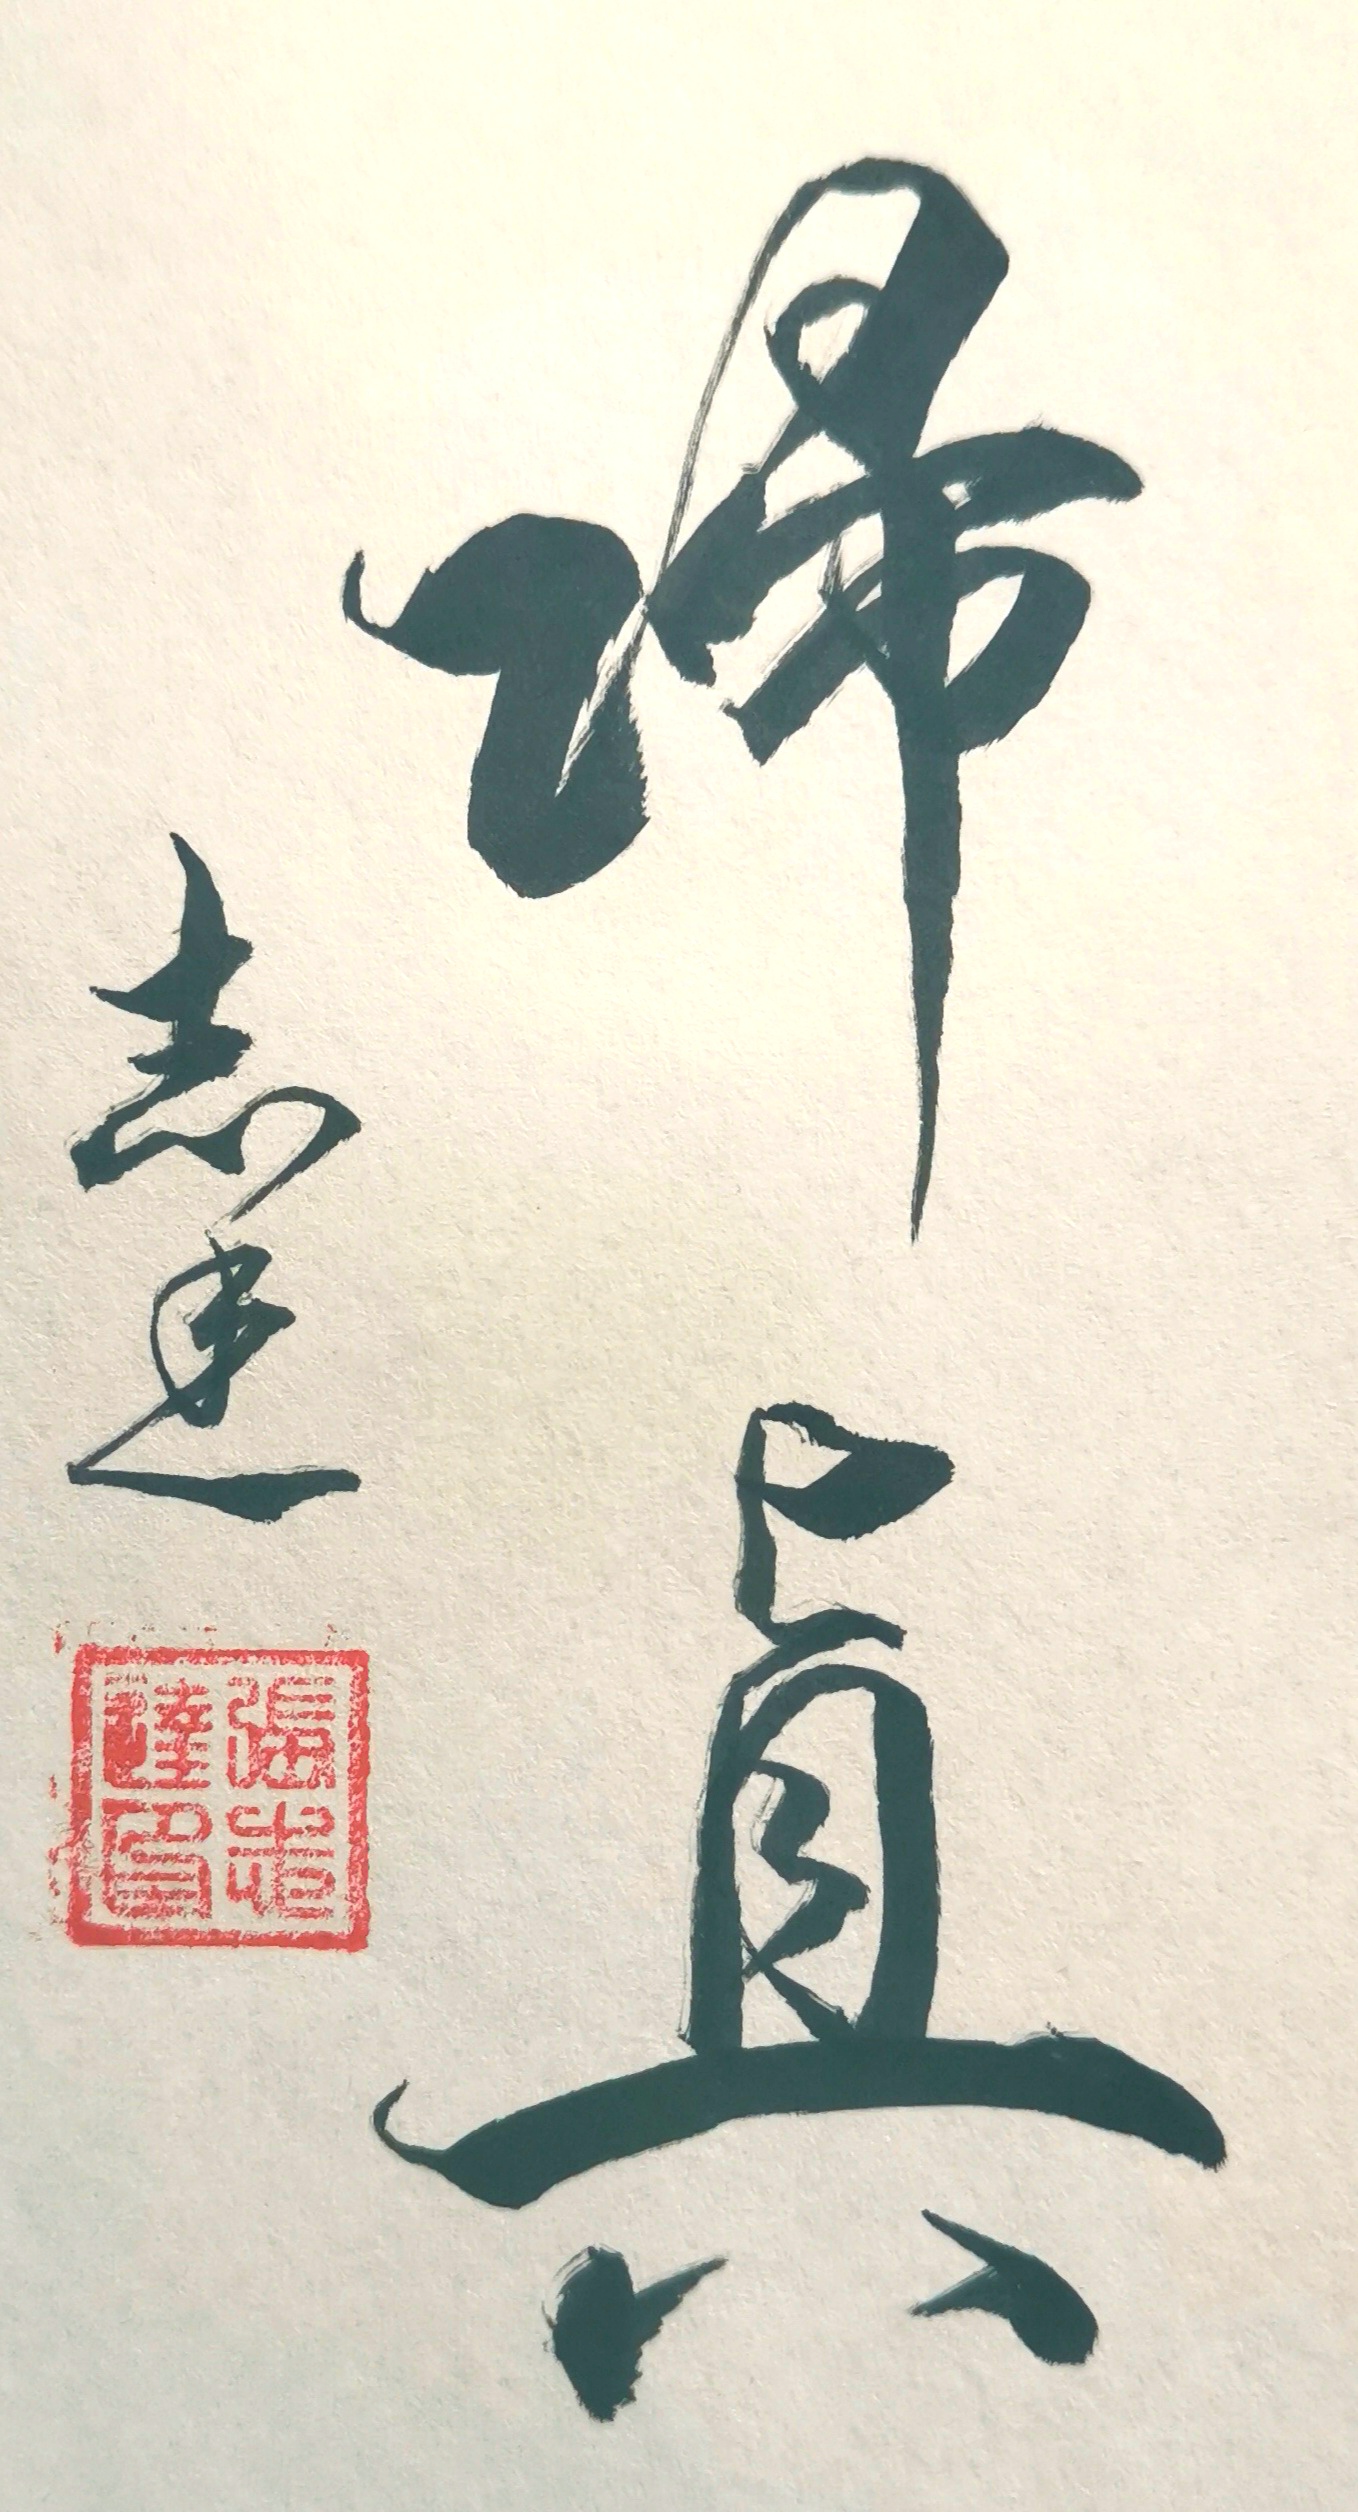 歸真
志達
張志達印